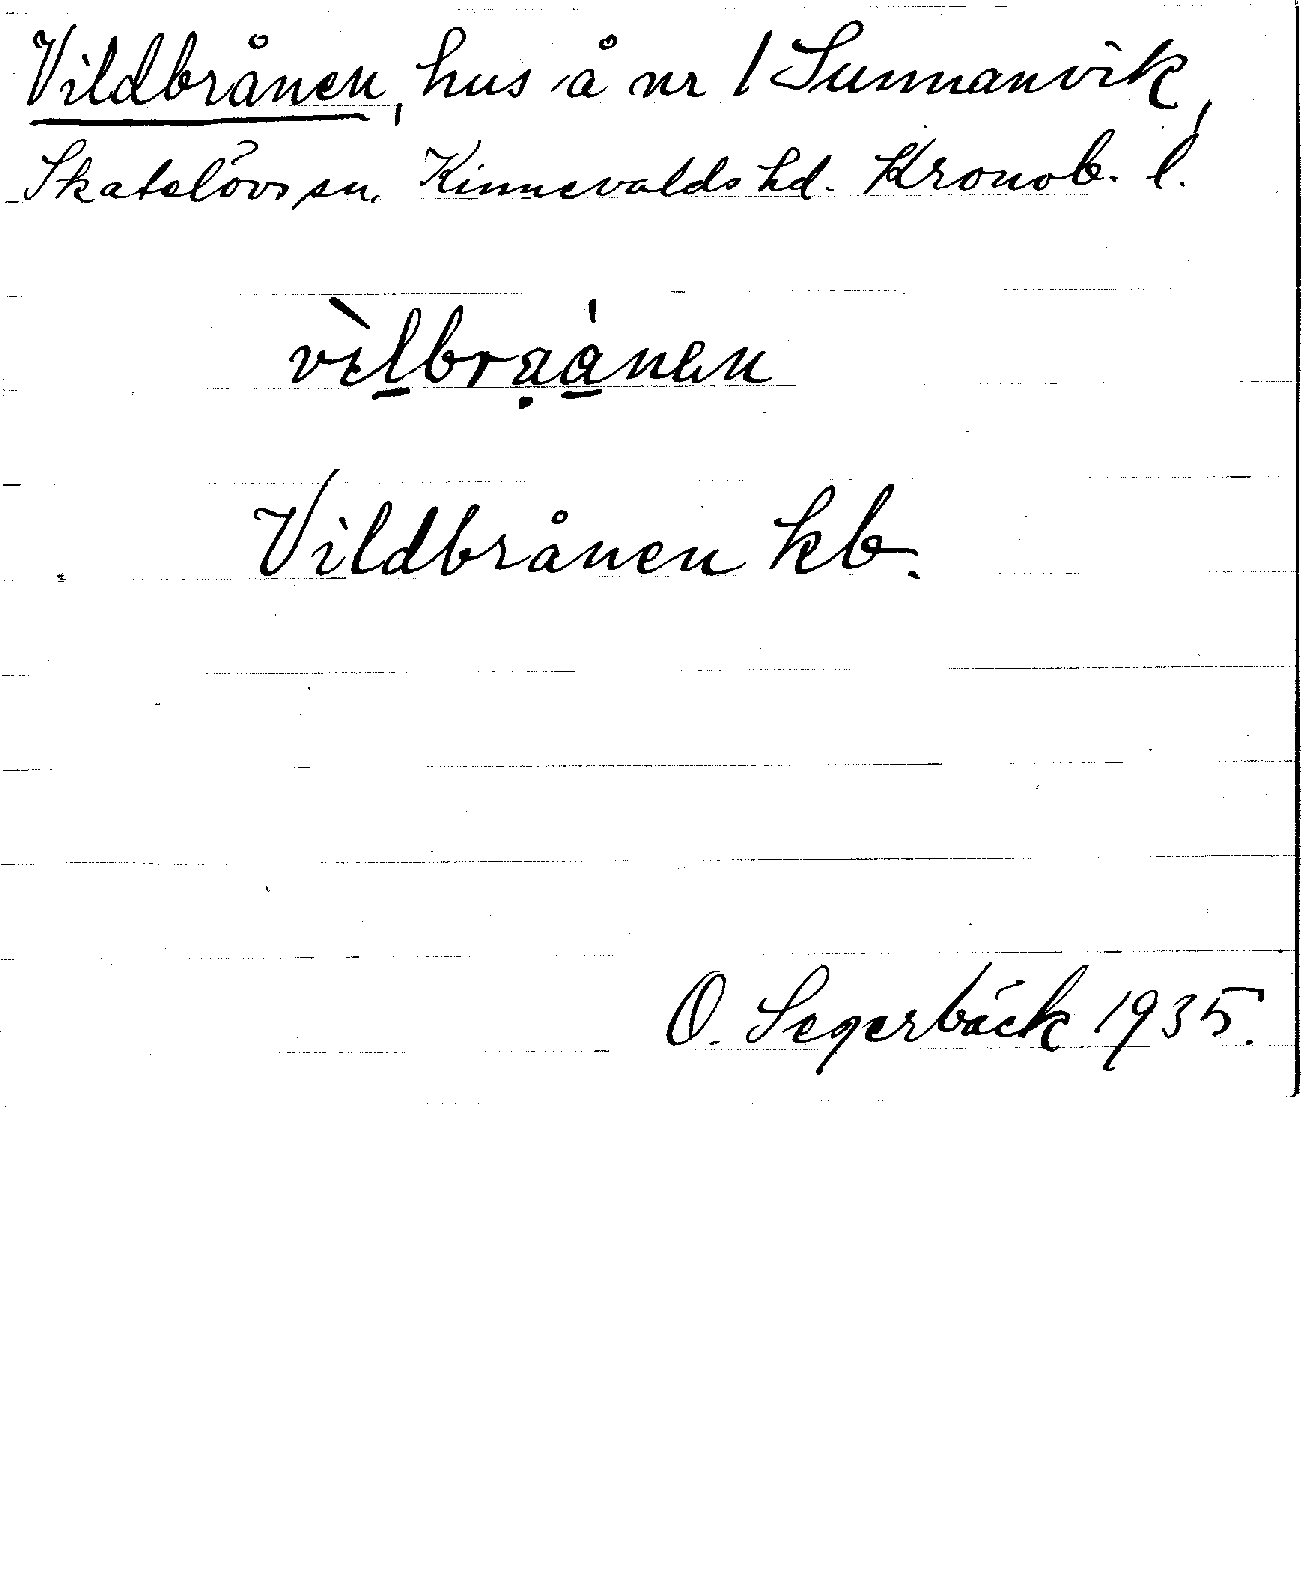 Vildbrånen, hus å nr 1 Sunnanvik,
Skatelövs sn. Kinnevalds hd. Kronob. l.
vìl̠brạa̠̍nen
Vildbrånen kb.
O. Segerbäck 1935.